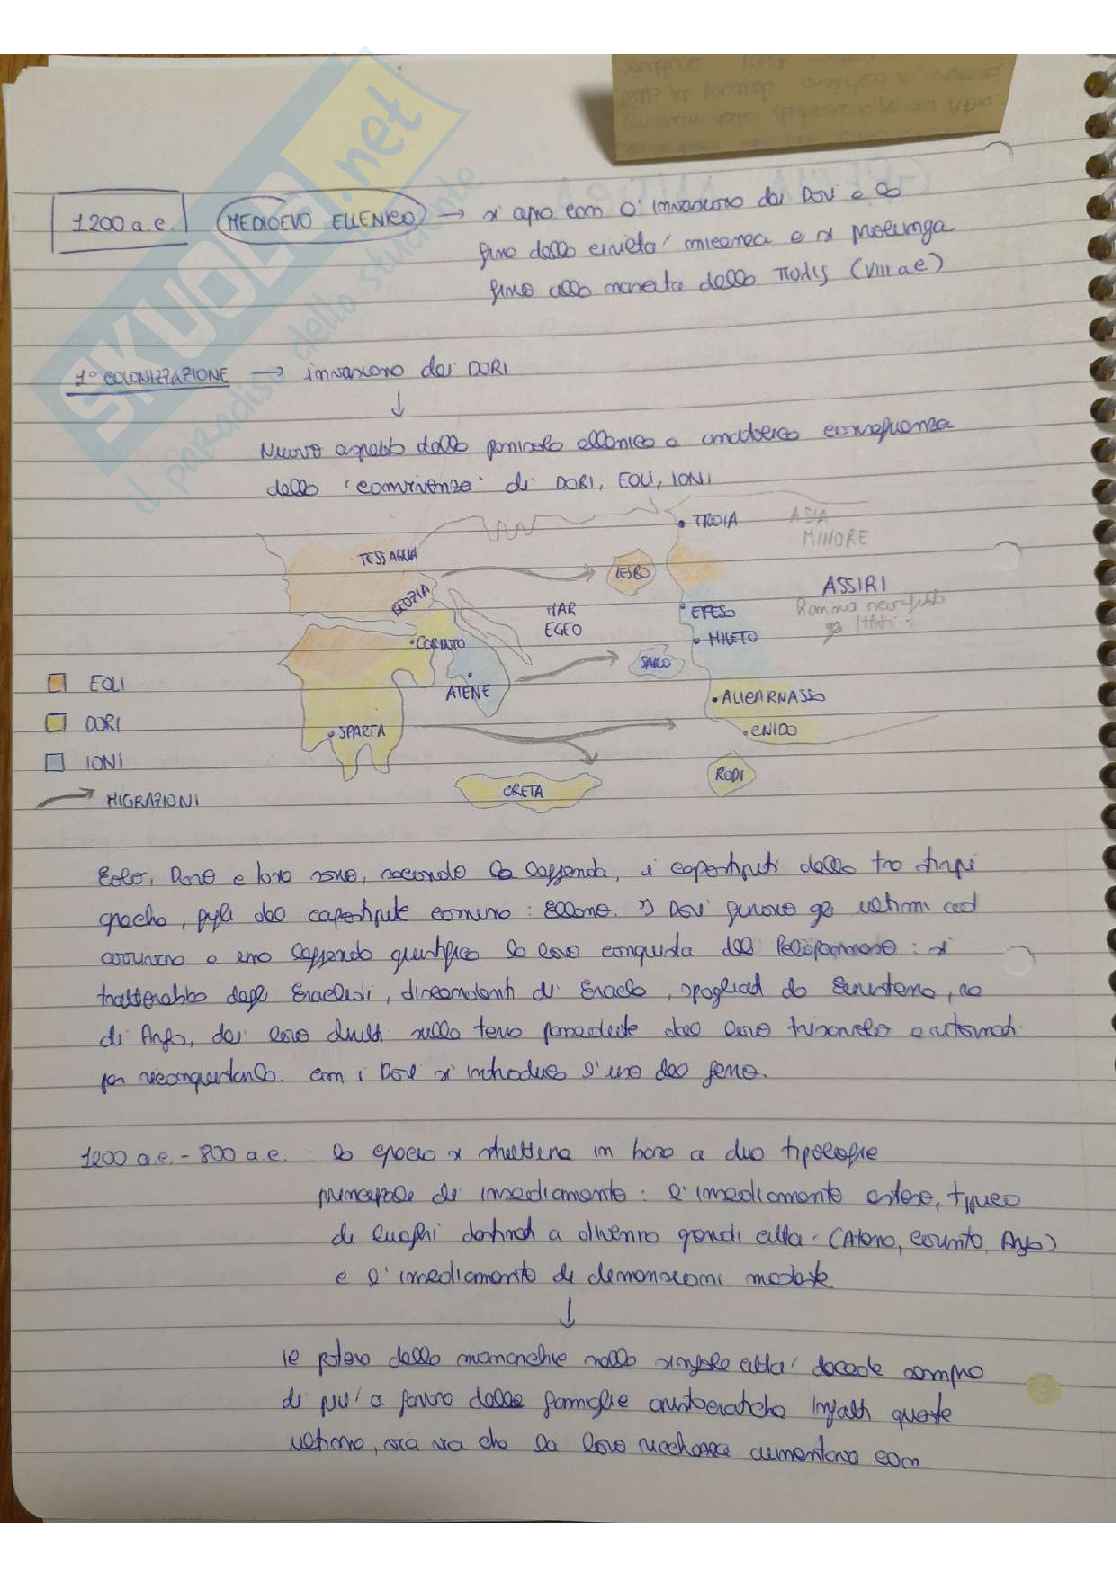 1200 a.e. MEDIOEVO ELLENICO → si apre con l'invasione dei Dori e la
fine della civiltà micenea e si prolunga
fino alla nascita della πολις (VIII a.e)
1° COLONIZZAZIONE → invasione dei DORI
↓
Nuovo aspetto della penisola ellenica e
della "convivenza" di DORI, EOLI, IONI
TROIA
ASIA
MINORE
TESSAGLIA
BEOZIA
LESBO
ASSIRI
MAR
EGEO
EFESO
MILETO
CORINTO
SAMO
ATENE
ALICARNASSO
SPARTA
CNIDO
RODI
CRETA
EOLI
DORI
IONI
MIGRAZIONI
Eolo, Doro e Ione sono, secondo la leggenda, i capostipiti delle tre stirpi
greche, figli del capostipite comune: Elleno. I Dori furono gli ultimi ad
arrivare e una leggenda giustifica la loro conquista del Peloponneso: si
tratterebbe degli Eraclidi, discendenti di Eracle, spogliati da Euristeo, re
di Argo, dei loro diritti sulle terre possedute dal loro e ritornati
per riconquistarle. con i Dori si introduce l'uso del ferro.
1200 a.e. - 800 a.e. la grecia si struttura in base a due tipologie
principali di insediamento: l'insediamento esteso, tipico
di luoghi destinati a divenire grandi città (Atene, Corinto, Argo)
e l'insediamento di dimensioni modeste
↓
Il potere delle monarchie nelle singole città decade sempre
di più a favore delle famiglie aristocratiche Infatti queste
ultime, via via che la loro ricchezza aumentava con
SKUOLA.net
il paradiso dello studente